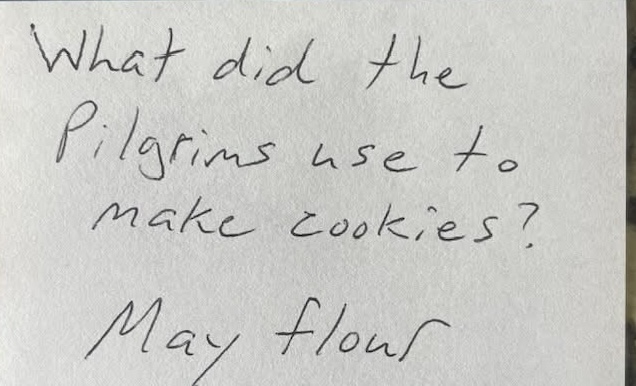 What did the
Pilgrims use to
make cookies?
May flour